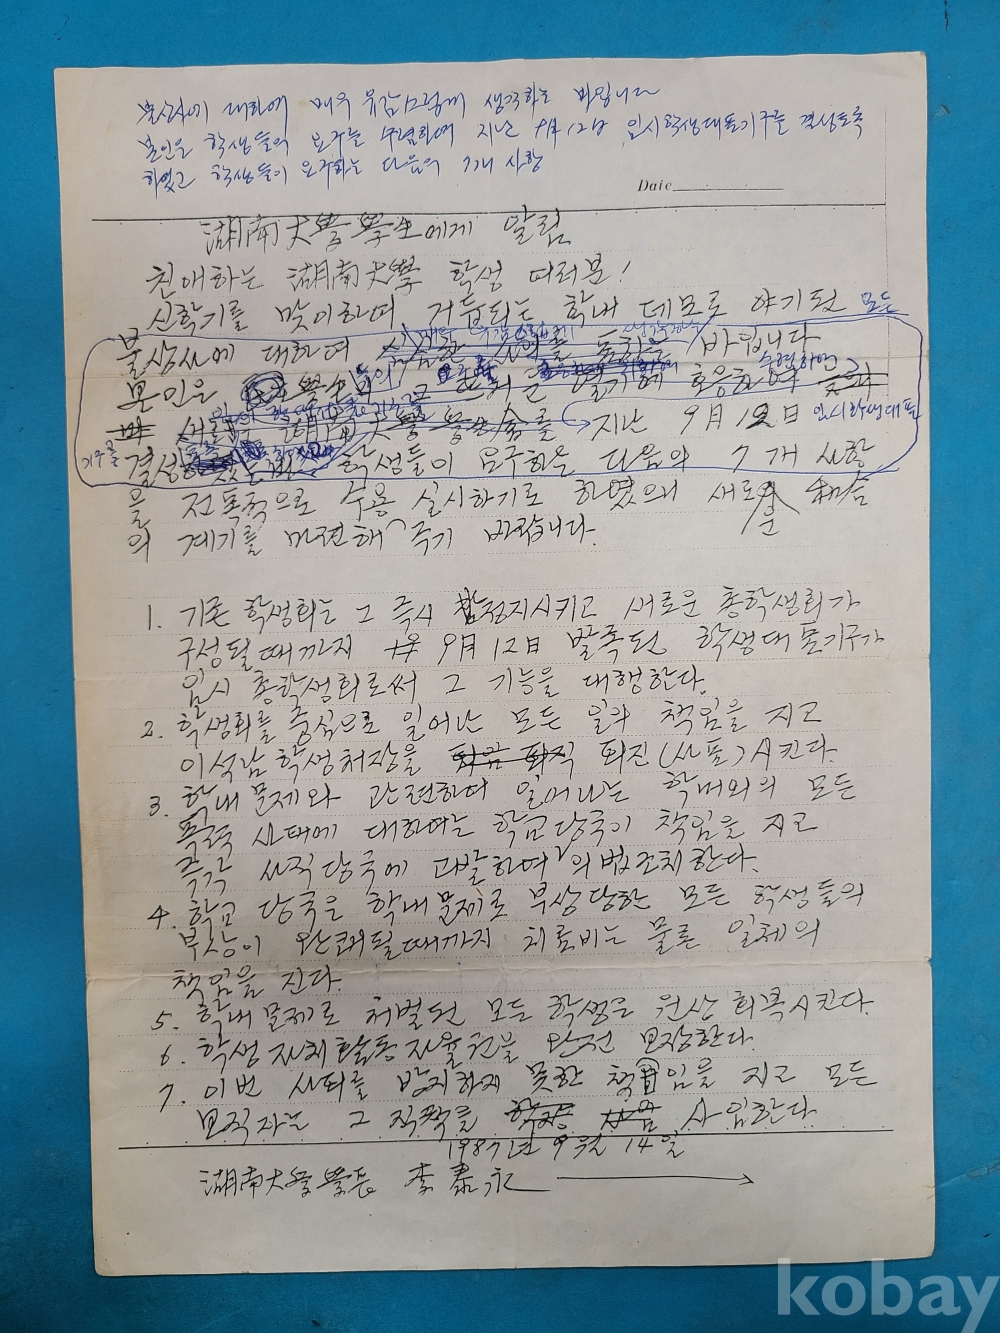 불상사에 대하여 매우 유감스럽게 생각하는 바입니다
본인은 학생들의 요구를 수렴하여 지난 9月 12日 임시학생대표기구를 결성토록
하였고 학생들이 요구하는 다음의 7개 사항
Date
湖南大學 學生에게 알림
친애하는 湖南大學 학생 여러분!
신학기를 맞이하여 거듭되는 학내 데모로 야기된 모든
불상사에 대하여 바입니다
본인은 學生들의 수렴하여
지난 9月 12日 임시학생대표
기구를 결성 학생들이 요구하는 다음의 7개 사항
을 전폭적으로 수용 실시하기로 하였으니 새로운 和合
의 계기를 마련해 주기 바랍니다.
1. 기존 학생회는 그 즉시 정지시키고 새로운 총학생회가
구성될 때까지 9月 12日 발족된 학생대표기구가
임시 총학생회로써 그 기능을 대행한다.
2. 학생회를 중심으로 일어난 모든 일의 책임을 지고
이석남 학생처장을 퇴진(사표)시킨다.
3. 학내 문제와 관련하여 일어나는 학내외의 모든
폭력 사태에 대하여는 학교당국이 책임을 지고
즉각 사직당국에 고발하여 의법조치한다.
4. 학교 당국은 학내 문제로 부상당한 모든 학생들의
부상이 완쾌될때까지 치료비는 물론 일체의
책임을 진다.
5. 학내 문제로 처벌된 모든 학생은 원상 회복시킨다.
6. 학생 자치활동 자율권을 완전 보장한다.
7. 이번 사태를 방지하지 못한 책임을 지고 모든
보직자는 그 직책을 사임한다.
1987년 9월 14일
湖南大學 學長 李泰永
kobay